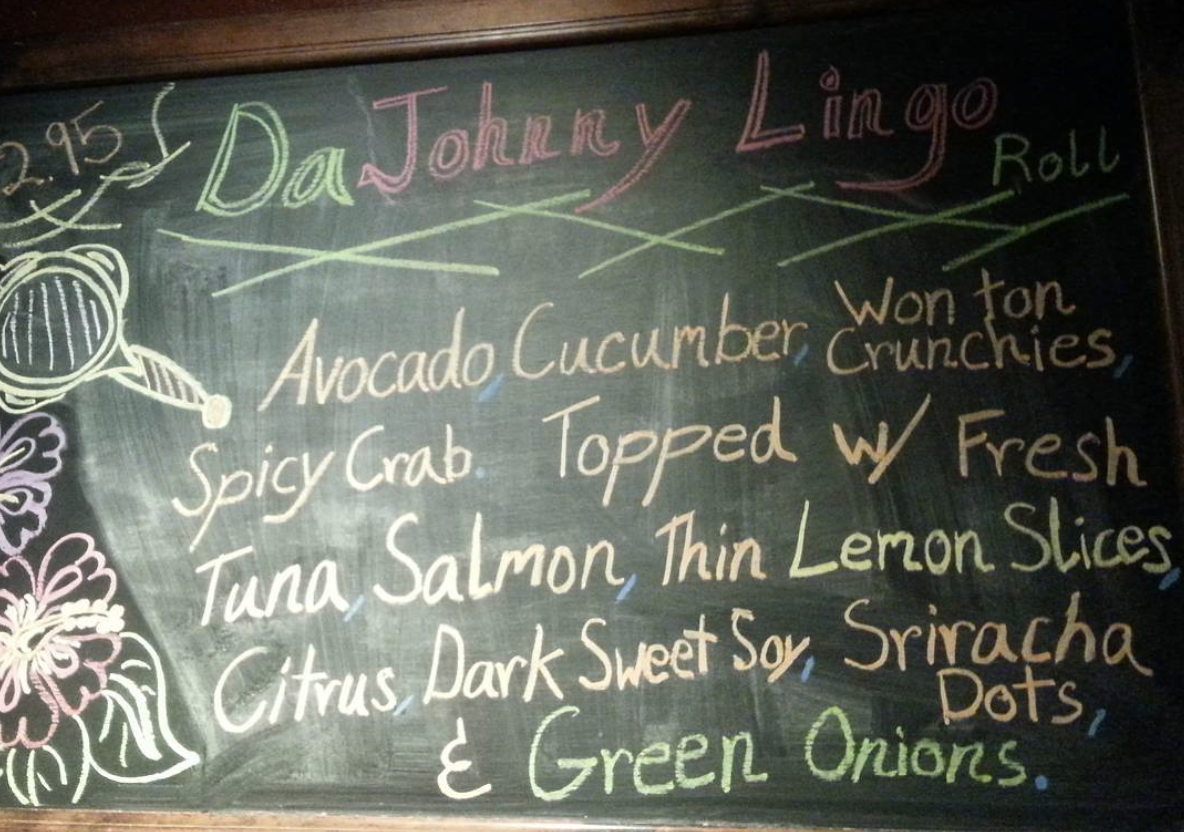 2.95
Da Johnny Lingo Roll
Avocado, Cucumber, Won ton Crunchies,
Spicy Crab. Topped w/ Fresh
Tuna, Salmon, Thin Lemon Slices,
Citrus, Dark Sweet Soy, Sriracha Dots,
& Green Onions.